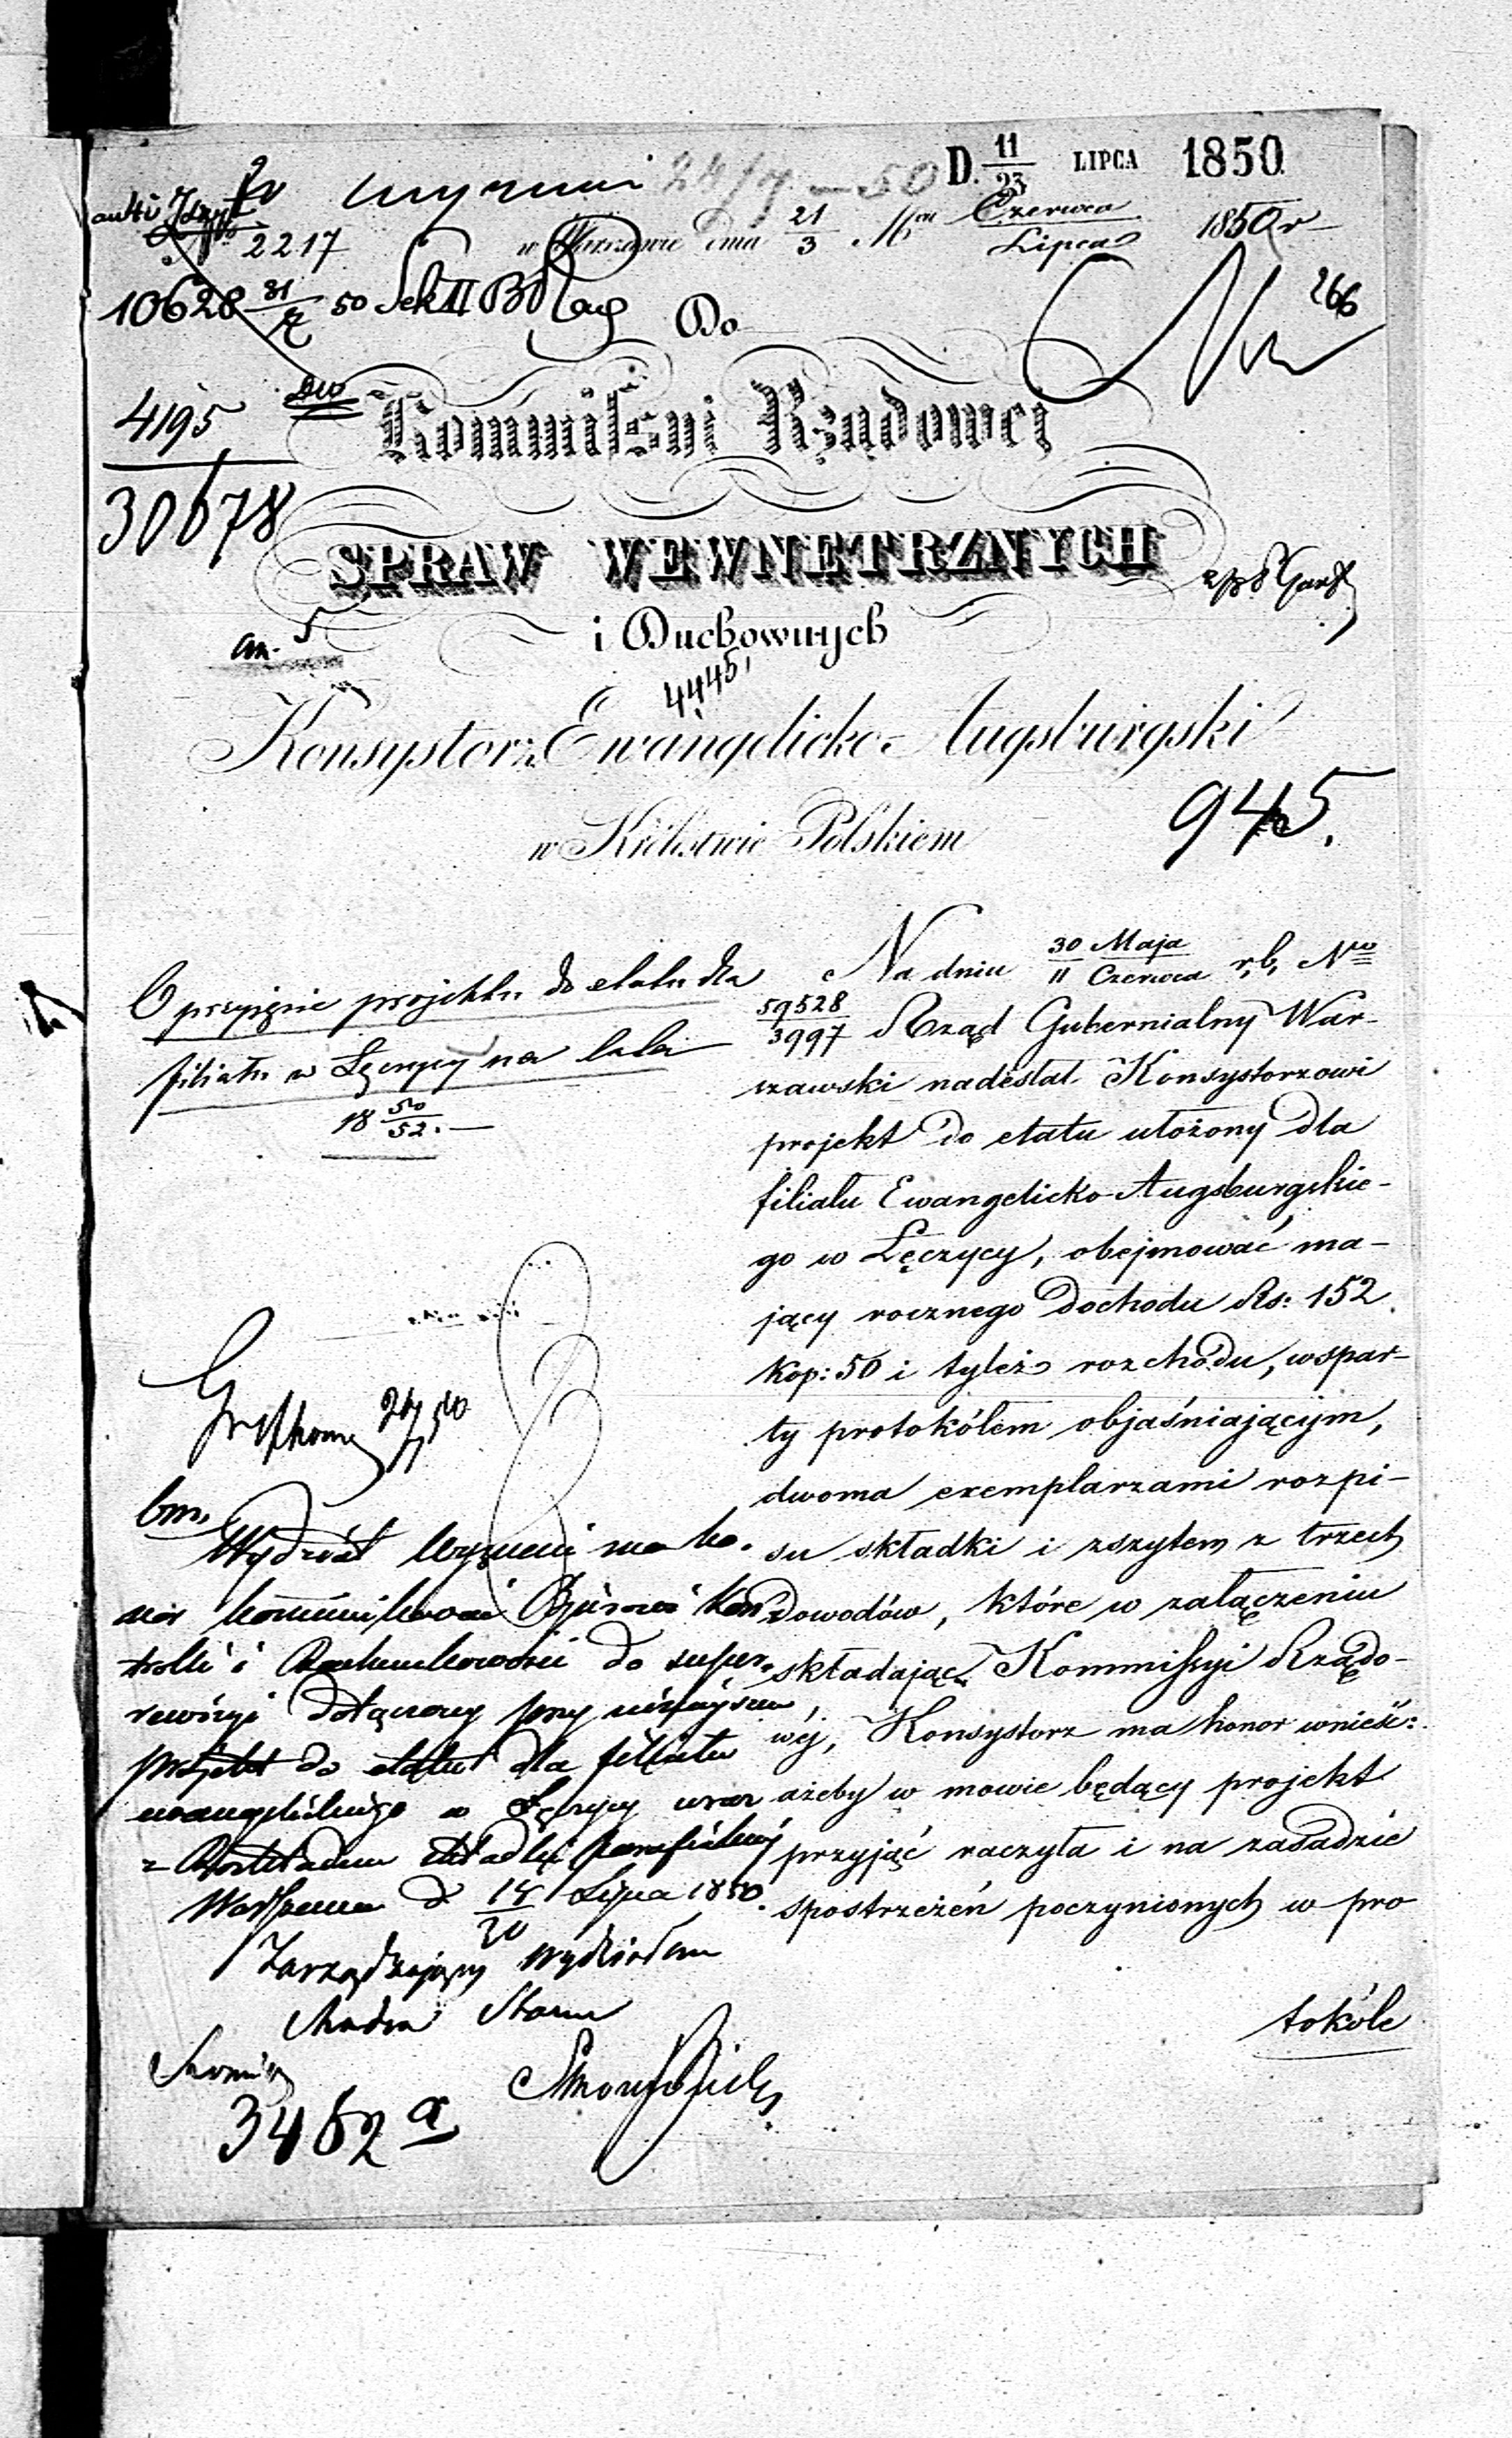 D. 11/23 LIPCA 1850
24/7 - 50
2217
w Warszawie dnia 21/3 Mca Czerwca/Lipca 1850 r
10620 31/7 50 Sek II
266
Do
4195
30678
Kommissyi Rządowej
SPRAW WEWNĘTRZNYCH
i Duchownych
an. 5
4445
Konsystorz Ewangelicko-Augsburgski
w Królestwie Polskiem
945.
O przyjęcie projektu do etatu dla
filiału w Łęczycy na lata
18 50/52.
Na dniu 30 Maja/11 Czerwca r. b. Nro
59528/3997 Rząd Gubernialny War-
szawski nadesłał Konsystorzowi
projekt do etatu ułożony dla
filiału Ewangelicko-Augsburgskie-
go w Łęczycy, obejmować ma-
jący rocznego dochodu Rs: 152
kop: 50 i tyleż rozchodu, wspar-
ty protokółem objaśniającym,
dwoma exemplarzami rozpi-
su składki i zszytem z trzech
dowodów, które w załączeniu
składając Kommissyi Rządo-
wéj, Konsystorz ma honor wnieść:
ażeby w mowie będący projekt
przyjąć raczyła i na zasadzie
spostrzeżeń poczynionych w pro
tokóle
bm.
Wydział Wyznań ma ho-
nor komunikować Biórowi Kon
trolli i Rachunkowości do super-
rewizyi dołączony przy niniejszem
projekt do etatu dla filiału
ewangelickiego w Łęczycy wraz
z Rozkładem składki parafialnej
Warszawa d 18/20 Lipca 1850.
Zarządzający Wydziałem
Radca Stanu
3462 a